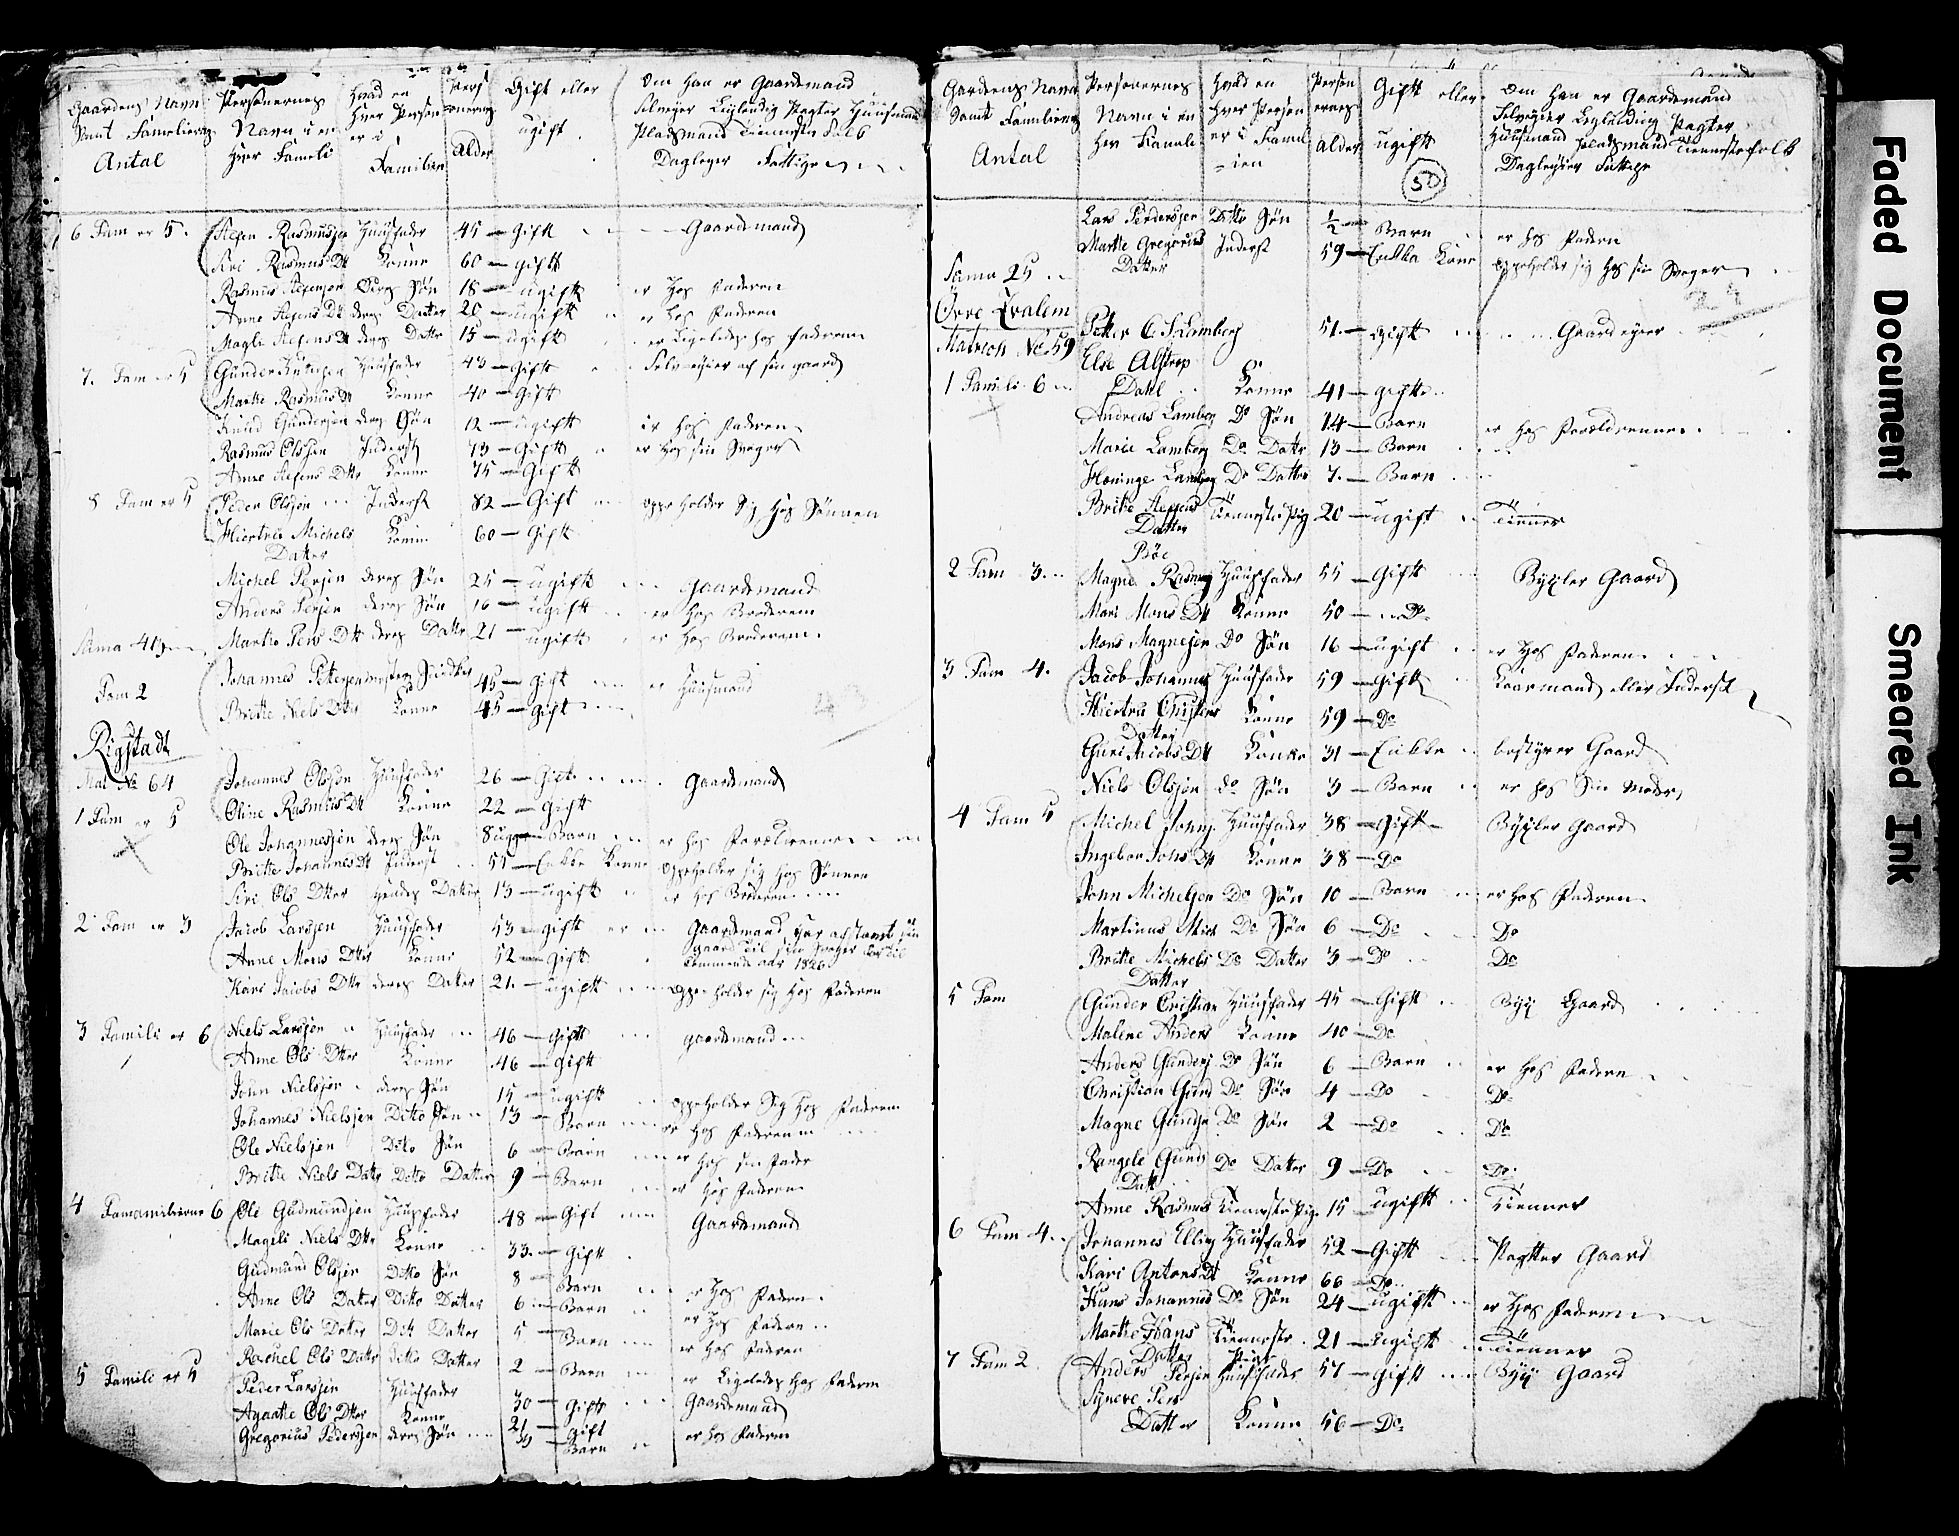 Gaardens Navn
Samt Familiernes
Antal
Personernes
Navn i en
hver Famili
hvad en
hver Person
er i
Familien
Pers
onernes
Alder
Gift eller
ugift
Om han er Gaardemand
Selveyer Leylending Pagter Huusmand
Pladsmand Tienneste Folk
Dagleyer Fattige
6 Fam er 5. Stefen Rasmusjen Huusfader 45 — Gift Gaardemand
Siri Rasmus Dt Konne 60 — gift
Rasmus Stefensen Deres Søn 18 — ugift er hos Faderen
Anne Stefens Dt deres Datter 20 — ugift er hos Faderen
Magle Stefens Dt deres Datter 15 — ugift er Ligeledes hos faderenn
7. Fam er 5 Gunder Knudsen Huusfader 43 — Gift Selv eyier af sin gaard
Marthe Rasmus Dt Konne 40 — Gift
Knud Gundersen deres Søn 12 — ugift er hos Faderen
Rasmus Olsjen Inderst 73 — Gift er hos sin Sveger
Anne Stefens Dtr Konne 75 — Gift
8 Fam er 5 Peder Olsjon Inderst 82 — Gift oppe holder Sig hos Sønnen
Hiertrue Michels Konne 60 — Gift
Datter
Michel Persen deres Søn 25 — ugift Gaardemand
Anders Persen deres Søn 16 — ugift er hos Broderen
Marthe Pers Dtr deres Datter 21 — ugift er hos Broderen.
Suma 41
Fam 2 Johannes Pettersen 45 — gift er Huusmand
Brithe Niels Dtr Konne 45 — gift
Rigstadt
Mat No 64 Johannes Olsjen Huusfader 26 — Gift Gaardemand
1 Fam er 5 Oline Rasmus Dt Konne 22 — Gift
Ole Johannesjen deres Søn 8 uger Barn er hos Forældrenne
Brithe Johannes Dt Inderst 55 — Enkke Konne oppeholder sig hos Sønnen
Siri Ols Dtter hendes Datter 13 — ugift er hos Broderen
2 Fam er 3 Jacob Larsjen Huusfader 53 — gift er Gaardemand har afstaaet sin
gaard til sin Sveger
kommende aar 1826
Anne Mons Dtter Konne 52 — gift
Kari Jacobs Dtr deres Datter 21. — ugift oppe holder sig hos Faderen
3 Famili er 6 Niels Larsjen Huusfader 46 — Gift gaardemand
Anne Ols Dtter Konne 46 — gift
John Nielsjen deres Søn 15 — ugift oppeholder Sig hos Faderen
Johannes Nielsjen Ditto Søn 13 — Barn er hos Faderen
Ole Nielsjen Dito Søn 6 — Barn er hos sin Fader
Brithe Niels Datr Dito Datter 9 — Barn er hos Faderen
4 Famamilierne 6 Ole Gudmundjen Huusfader 48 — Gift Gaardemand
Mageli Niels Dtr Konne 33. — Gift
Gudmund Olsjen Ditto Søn 8 — Barn er hos Faderen.
Anne Ols Dater Ditto Datter 6 — Barn er hos Faderen
Marie Ols Dater Dito Datter 5 — Barn er hos Faderen
Rachel Ols Dattr ditto Datter 2 — Barn er Ligeledes hos Faderen
5 Famili er 5 Peder Larsjen Huusfader 30 — Gift Gaardemand
Agaathe Ols Dtter Konne 21 — Gift
Gregorius Pedersjen deres Søn Barn er hos Faderen
Gardens Navn
Samt Familiernes
Antal
Personernes
Navn i en
hver Famili
Hvad en
hver Person
er i Famil
-ien
Person
ernes
Alder
Gift eller
ugift
50
Om han er Gaardemand
Selveyier Leylending Pagter
Huusmand Pladsmand Tiennestefolk
Dagleyier Fattige
Lars Pedersjen Ditto Søn ½ — Barn er hos Faderen
Marthe Gregorius Inderst 59 — Enkke Kone oppeholder sig hos sin Sveger
Datter
Suma 25
Øvre Qvalem
Matricu No 59 Petter C. S. Lamberg 51. — Gift Gaardeyier
1 Famili 6 Else Alstrop
Dahl Konne 41 — gift
Andreas Lamberg Do Søn 14 — Barn er hos Forældrenne
Marie Lamberg Do Datr 13 — Barn
Heninge Lamberg Do Datter 7. — Barn
Brithe Stefens Tiennestepig 20 — ugift Tienner
Datter
Bøe
2 Fam 3. Magne Rasmus Huusfader 55 — Gift Byxler Gaard
Mari Mons Dt Konne 50 — Do
Mons Magnesen Do Søn 16 — ugift er hos Faderen
3 Fam 4. Jacob Johannes Huusfader 59 — Gift Kaarmand eller Inderst
Hiertru Christens Konne 59 — Do
Datter
Guri Jacobs Dt Konne 31 — Enkke bestyrer Gaard
Niels Olsjon do Søn 3 — Barn er hos Sin moder
4 Fam 5 Michel Johns Huusfader 38 — gift Byxler Gaard
Ingebor Johs Dt Konne 38 — Do
John Michelsen Do Søn 10 — Barn er hos Faderen
Martinus Mich Do Søn 6 — Do Do
Brithe Michels Do Datter 3 — Do Do
Datter
5 Fam Gunder Cristian Huusfader 45 — Gift Byx Gaard
Malene Anders Konne 40 — Do
Anders Gunders Do Søn 6 — Barn er hos Faderen
Christian Gund Do Søn 4 — Do Do
Magne Gunder Do Søn 2 — Do Do
Rangele Gunds Do Datter 9 — Do Do
Datt
Anne Rasmus Tiennestepige 15 — ugift Tienner
6 Fam 4. Johannes Elling Huusfader 52 — Gift Pagtter Gaard
Kari Antons Dt Konne 66 — Do
Hans Johannes Do Søn 24 — ugift er hos Faderen
Marthe Hans Tiennestepige 21 — ugift Tienner
Datter
7 Fam 2 Anders Persen Huusfader 57 — gift Byx Gaard
Syneve Pers
Datter Konne 56 — Do
Faded Document
Smeared Ink